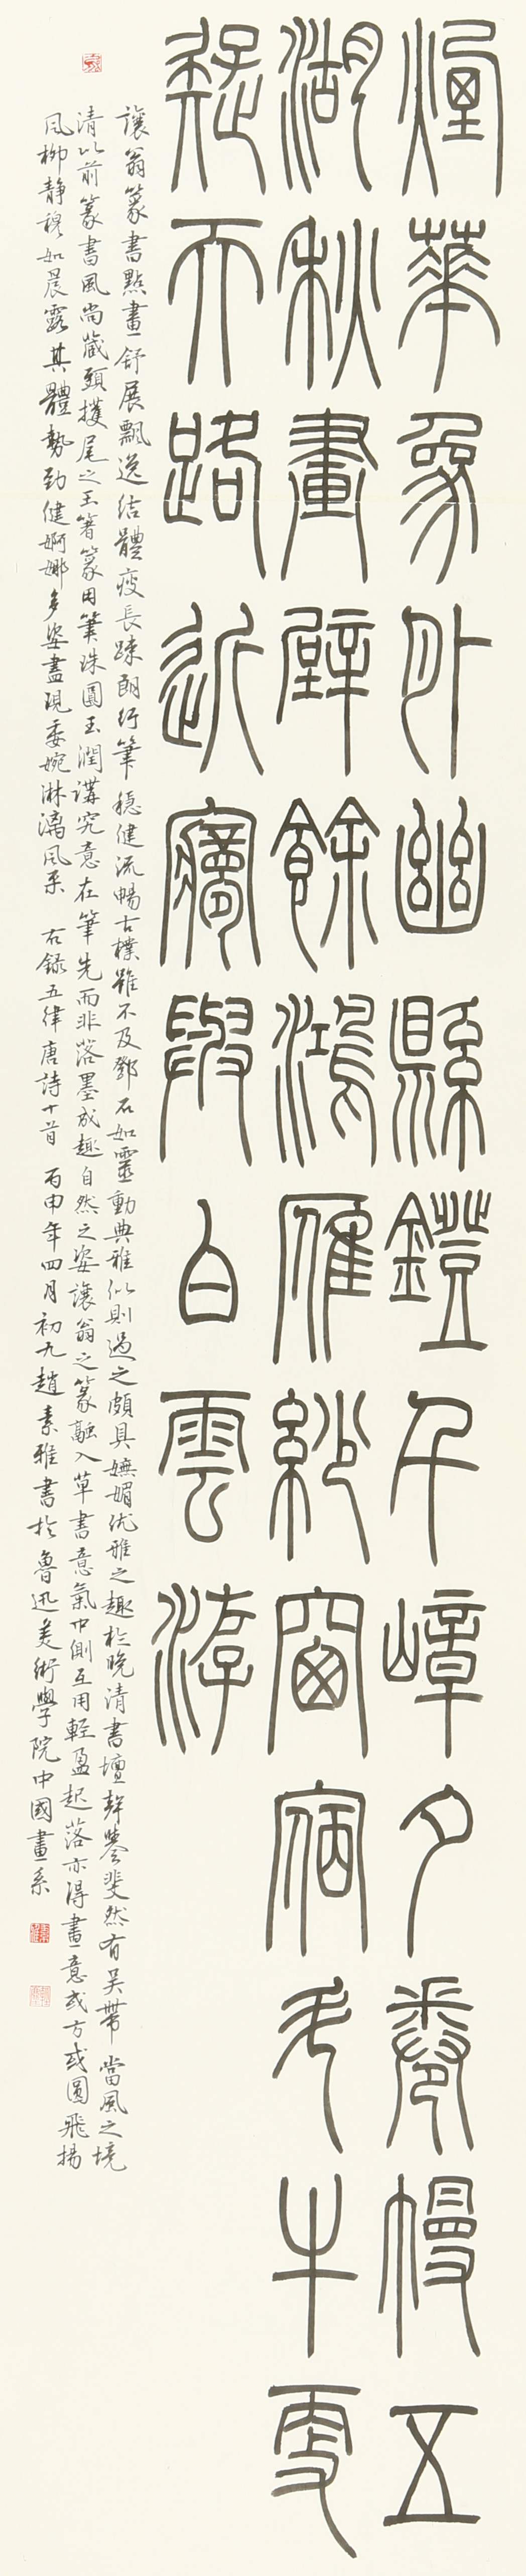 煙華象外幽縣鐙千嶂夕卷幔五
湖秋畫壁餘鴻雁紗窗宿斗牛更
疑天路近夢與白雲游
讓翁篆書點畫舒展飄逸結體瘦長疎朗行筆穩健流暢古樸雖不及鄧石如靈動典雅似則過之頗具嫵媚优雅之趣於晚清書壇聲譽斐然有吴帶當風之境
清以前篆書風尚蔵頭擭尾之玉箸篆用筆珠圓玉潤講究意在筆先而非落墨成趣自然之姿讓翁之篆融入草書意氣中側互用輕盈起落亦得畫意或方或圓飛揚
风柳静穆如晨露其體勢勁健婀娜多姿盡現委婉淋漓风采 右錄五律唐詩十首 丙申年四月初九趙素雅書於魯迅美術學院中國畫系